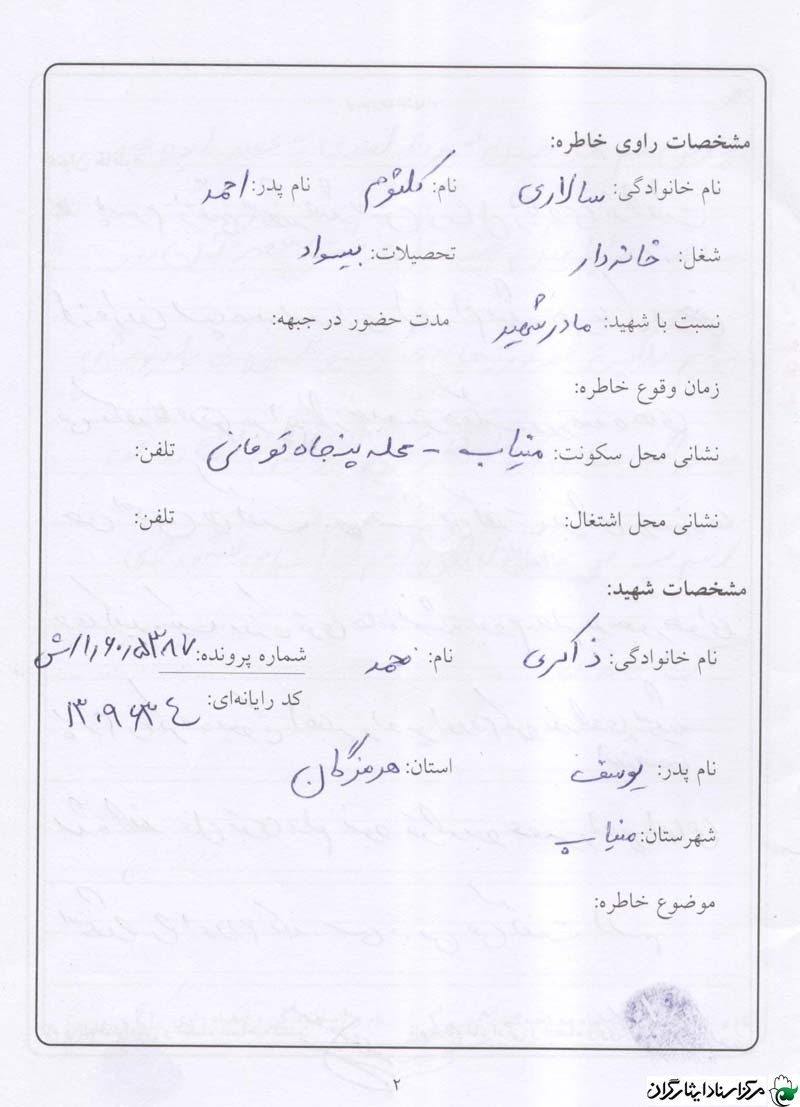 مشخصات راوی خاطره:
نام خانوادگی: سالاری نام: کلثوم نام پدر: احمد
شغل: خانه دار تحصیلات: بیسواد
نسبت با شهید: مادر شهید مدت حضور در جبهه:
زمان وقوع خاطره:
نشانی محل سکونت: میناب - محله پنجاه تومانی تلفن:
نشانی محل اشتغال: تلفن:
مشخصات شهید:
نام خانوادگی: ذاکری نام: محمد شماره پرونده:
کد رایانه‌ای: ۱۳۰۹۶۳۴
نام پدر: یوسف استان: هرمزگان
شهرستان: میناب
موضوع خاطره:
۲
مرکز اسناد ایثارگران